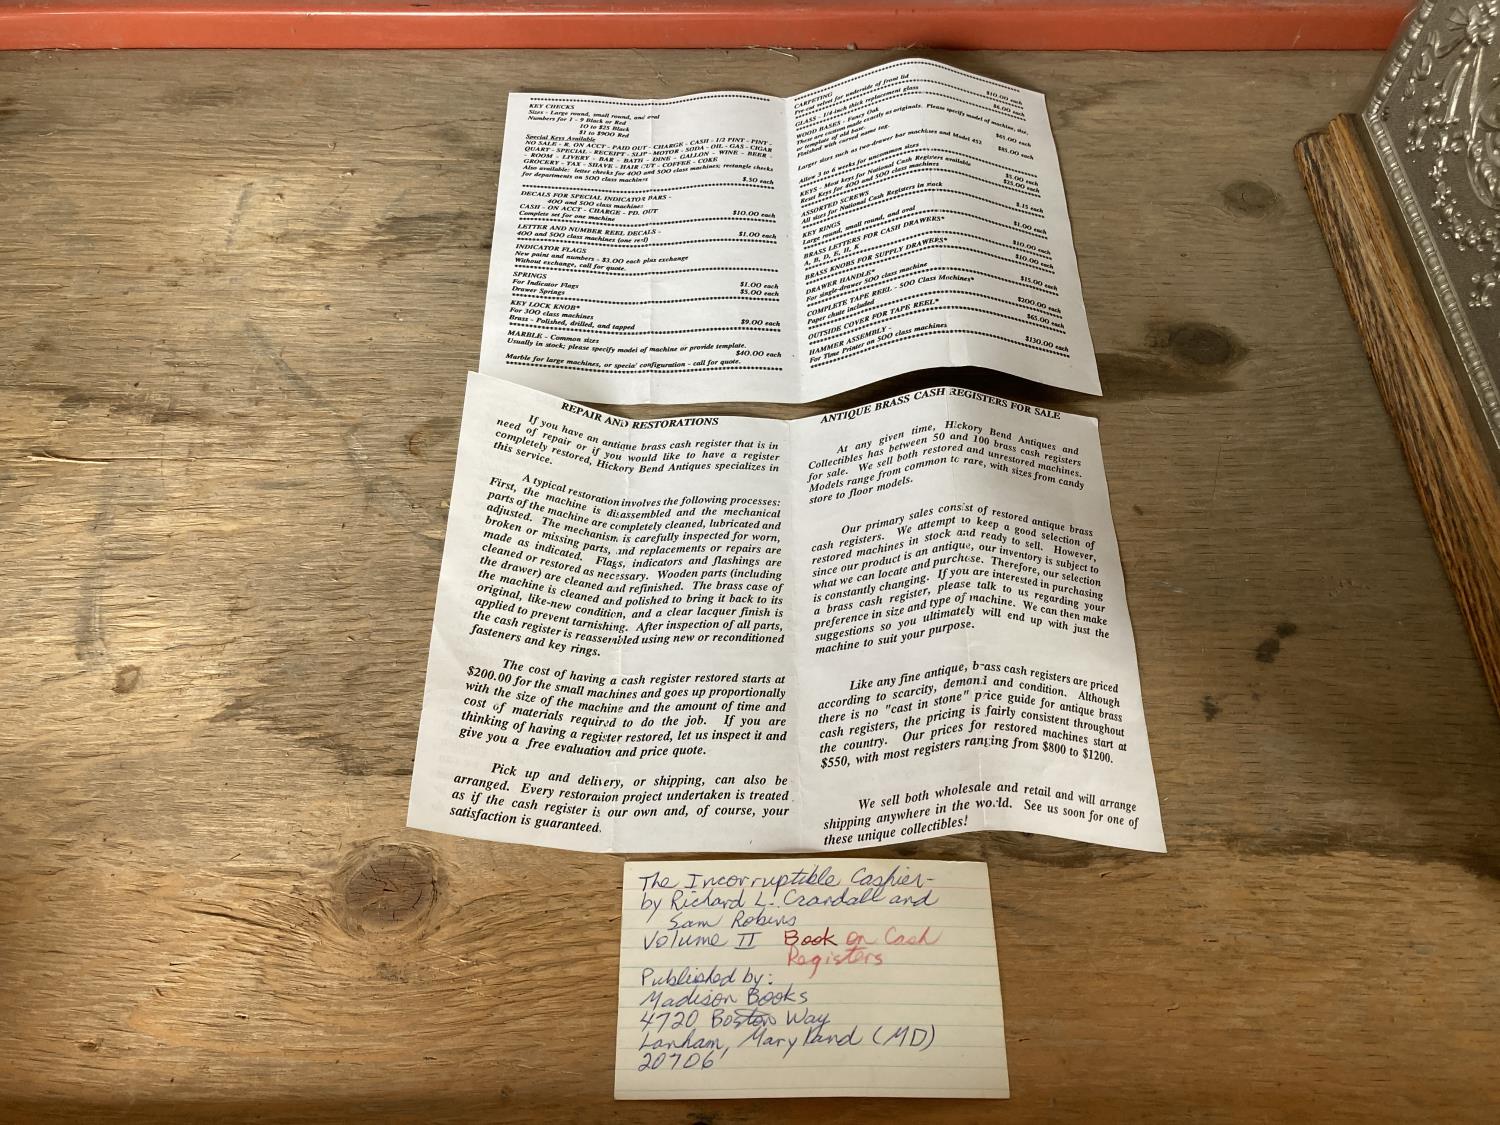 KEY CHECKS
Sizes - Large round, small round, and oval
Numbers for 1 - 9 Black or Red
10 to $25 Black
$1 to $900 Red
Special Keys Available
NO SALE - R. ON ACCT - PAID OUT - CHARGE - CASH - 1/2 PINT - PINT -
QUART - SPECIAL - RECEIPT - SLIP - MOTOR - SODA - OIL - GAS - CIGAR
- ROOM - LIVERY - BAR - BATH - DINE - GALLON - WINE - BEER -
GROCERY - TAX - SHAVE - HAIR CUT - COFFEE - COKE
Also available: letter checks for 400 and 500 class machines; rectangle checks
for departments on 500 class machines $.50 each
DECALS FOR SPECIAL INDICATOR BARS -
400 and 500 class machines
CASH - ON ACCT - CHARGE - PD. OUT
Complete set for one machine $10.00 each
LETTER AND NUMBER REEL DECALS -
400 and 500 class machines (one reel) $1.00 each
INDICATOR FLAGS
New paint and numbers - $3.00 each plus exchange
Without exchange, call for quote.
SPRINGS
For Indicator Flags $1.00 each
Drawer Springs $5.00 each
KEY LOCK KNOB*
For 300 class machines
Brass - Polished, drilled, and tapped $9.00 each
MARBLE - Common sizes
Usually in stock; please specify model of machine or provide template.
$40.00 each
Marble for large machines, or special configuration - call for quote.
CARPETING
Pre-cut velvet for underside of front lid $10.00 each
GLASS - 1/4-inch thick replacement glass $6.00 each
WOOD BASES - Fancy Oak
These are custom made exactly as originals. Please specify model of machine, size,
or template of old base.
Finished with carved name tag. $65.00 each
Larger sizes such as two-drawer bar machines and Model 452 $85.00 each
Allow 3 to 6 weeks for uncommon sizes
KEYS - Most keys for National Cash Registers available $5.00 each
Reset Keys for 400 and 500 class machines $25.00 each
ASSORTED SCREWS
All sizes for National Cash Registers in stock $.15 each
KEY RINGS
Large round, small round, and oval $1.00 each
BRASS LETTERS FOR CASH DRAWERS*
A, B, D, E, H, K $10.00 each
BRASS KNOBS FOR SUPPLY DRAWERS* $10.00 each
DRAWER HANDLE*
For single-drawer 500 class machine $15.00 each
COMPLETE TAPE REEL - 500 Class Machines*
Paper chute included $200.00 each
OUTSIDE COVER FOR TAPE REEL* $65.00 each
HAMMER ASSEMBLY -
For Time Printer on 500 class machines $130.00 each
REPAIR AND RESTORATIONS
If you have an antique brass cash register that is in
need of repair or if you would like to have a register
completely restored, Hickory Bend Antiques specializes in
this service.
A typical restoration involves the following processes:
First, the machine is disassembled and the mechanical
parts of the machine are completely cleaned, lubricated and
adjusted. The mechanism is carefully inspected for worn,
broken or missing parts, and replacements or repairs are
made as indicated. Flags, indicators and flashings are
cleaned or restored as necessary. Wooden parts (including
the drawer) are cleaned and refinished. The brass case of
the machine is cleaned and polished to bring it back to its
original, like-new condition, and a clear lacquer finish is
applied to prevent tarnishing. After inspection of all parts,
the cash register is reassembled using new or reconditioned
fasteners and key rings.
The cost of having a cash register restored starts at
$200.00 for the small machines and goes up proportionally
with the size of the machine and the amount of time and
cost of materials required to do the job. If you are
thinking of having a register restored, let us inspect it and
give you a free evaluation and price quote.
Pick up and delivery, or shipping, can also be
arranged. Every restoration project undertaken is treated
as if the cash register is our own and, of course, your
satisfaction is guaranteed.
ANTIQUE BRASS CASH REGISTERS FOR SALE
At any given time, Hickory Bend Antiques and
Collectibles has between 50 and 100 brass cash registers
for sale. We sell both restored and unrestored machines.
Models range from common to rare, with sizes from candy
store to floor models.
Our primary sales consist of restored antique brass
cash registers. We attempt to keep a good selection of
restored machines in stock and ready to sell. However,
since our product is an antique, our inventory is subject to
what we can locate and purchase. Therefore, our selection
is constantly changing. If you are interested in purchasing
a brass cash register, please talk to us regarding your
preference in size and type of machine. We can then make
suggestions so you ultimately will end up with just the
machine to suit your purpose.
Like any fine antique, brass cash registers are priced
according to scarcity, demand and condition. Although
there is no "cast in stone" price guide for antique brass
cash registers, the pricing is fairly consistent throughout
the country. Our prices for restored machines start at
$550, with most registers ranging from $800 to $1200.
We sell both wholesale and retail and will arrange
shipping anywhere in the world. See us soon for one of
these unique collectibles!
The Incorruptible Cashier -
by Richard L. Crandall and
Sam Robins
Volume II Book on Cash
Registers
Published by:
Madison Books
4720 Boston Way
Lanham, Maryland (MD)
20706